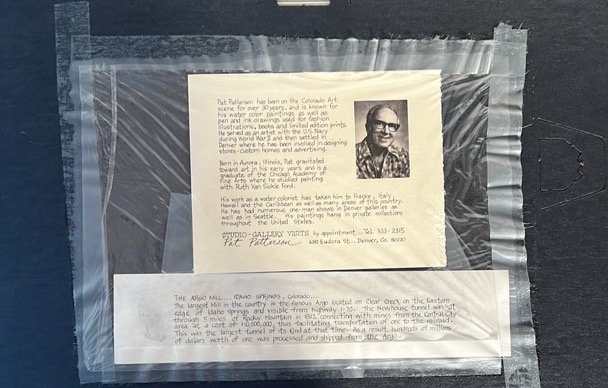 Pat Patterson has been on the Colorado Art
scene for over 30 years, and is known for
his water color paintings as well as
pen and ink drawings used for fashion
illustrations, books and limited edition prints.
He served as an artist with the U.S. Navy
during World War II and then settled in
Denver where he has been involved in designing
stores - custom homes and advertising.
Born in Aurora, Illinois, Pat gravitated
toward art in his early years and is a
graduate of the Chicago Academy of
Fine Arts where he studied painting
with Ruth Van Sickle Ford.
His work as a water colorist has taken him to France, Italy,
Hawaii and the Caribbean as well as many areas of this country.
He has had numerous one-man shows in Denver galleries as
well as in Seattle. His paintings hang in private collections
throughout the United States.
STUDIO-GALLERY VISITS by appointment... Tel. 333-2315
Pat Patterson 630 Eudora St... Denver, Co. 80220
THE ARGO MILL... IDAHO SPRINGS, Colorado...
The largest Mill in the country is the famous Argo located on Clear Creek on the Eastern
edge of Idaho Springs and visible from highway I-70. The Newhouse tunnel was cut
through 5 miles of Rocky Mountain in connecting with mines from the Central City
area at a cost of $10,000,000, thus facilitating transportation of ore to the railroad.
This was the largest tunnel of its kind at that time. As a result hundreds of millions
of dollars worth of ore was processed and shipped from the Argo.